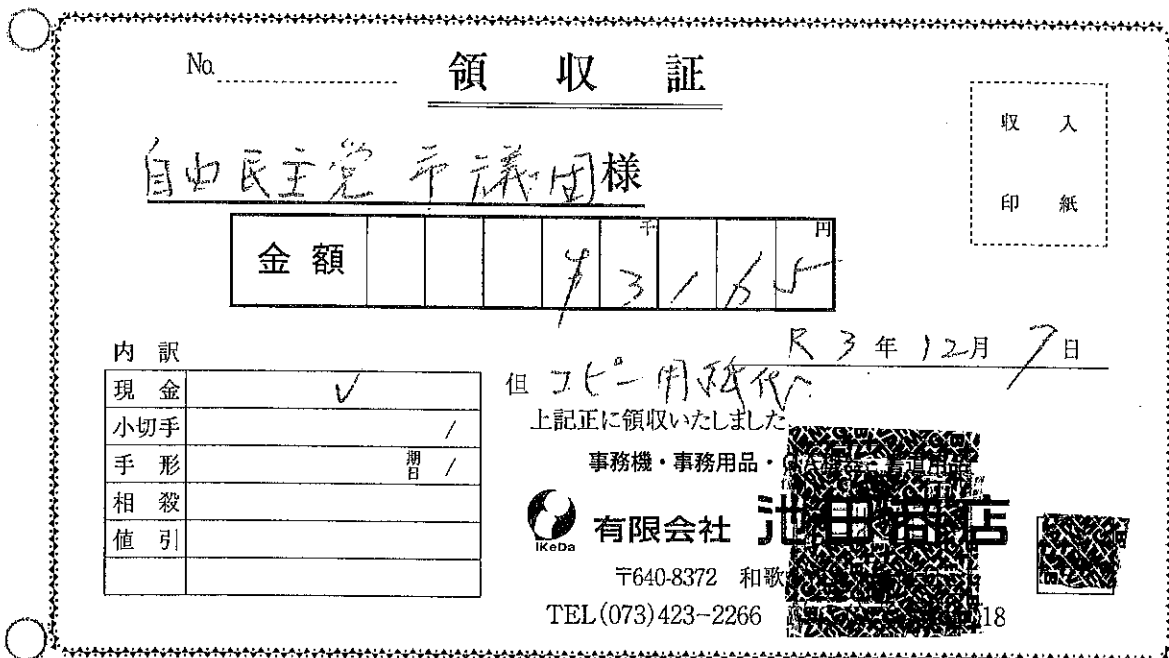 No.
領収証
収入
印紙
自由民主党 市議団様
金額 ¥3165
千 円
R3年12月7日
内訳
現金 ✓
小切手 /
手形 期日 /
相殺
値引
但 コピー用紙代
上記正に領収いたしました
事務機・事務用品・
IKeDa
有限会社 池田商店
〒640-8372 和歌
TEL(073)423-2266 18